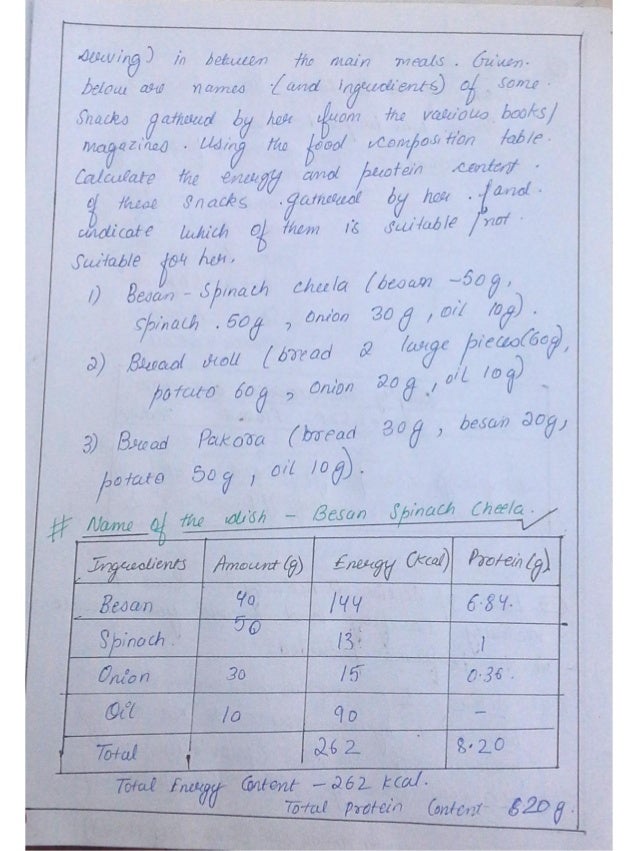 serving) in between the main meals. Given.
below are names (and ingredients) of some.
Snacks gathered by her from the various books/
magazines. Using the food composition table.
Calculate the energy and protein content.
of these snacks gathered by her. /and.
indicate which of them is suitable / not.
Suitable for her.
1) Besan - Spinach cheela (besan -50g,
spinach. 50g, onion 30g, oil 10g).
2) Bread roll (bread 2 large pieces(60g),
potato 60g, onion 20g, oil 10g)
3) Bread Pakora (bread 30g, besan 20g,
potato 50g, oil 10g).
# Name of the dish - Besan Spinach Cheela.
Ingredients Amount (g) Energy (Kcal) Protein (g)
Besan 40 144 6.84.
Spinach. 50 13 1
Onion 30 15 0.36.
Oil 10 90 -
Total 262 8.20
Total Energy Content - 262 Kcal.
Total Protein Content 820g.